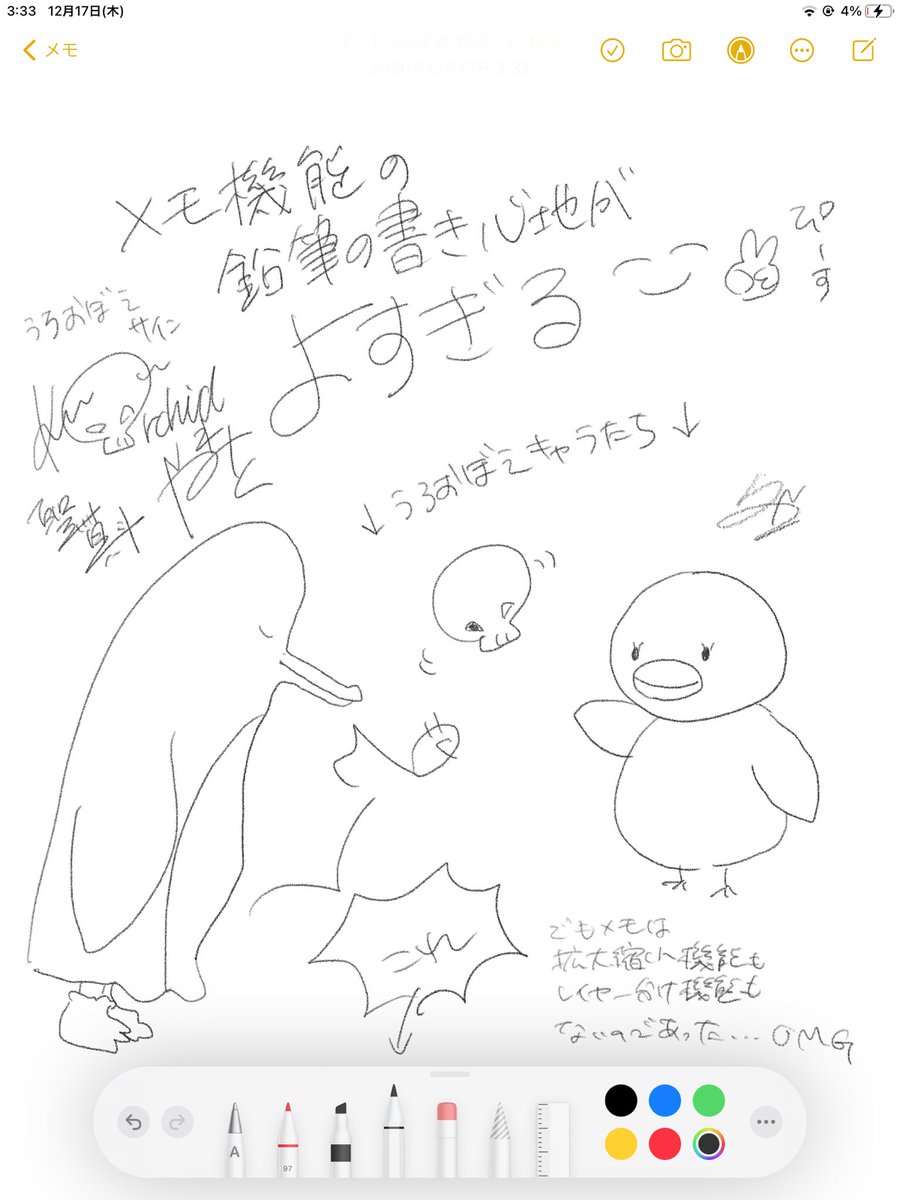 3:33 12月17日(木) 4%
メモ
2020年12月17日 3:32
メモ機能の
鉛筆の書き心地が
よすぎる
ぴーす
うろおぼえ
サイン
Orchid
↓うろおぼえキャラたち↓
これ
↓
でもメモは
拡大縮小機能も
レイヤー分け機能も
ないのであった… OMG
A
97